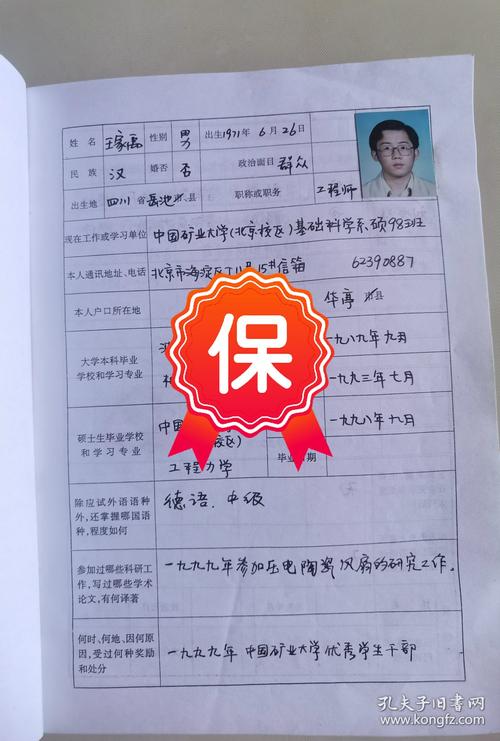 姓名 王家禹 性别 男 出生1971年6月26日
民族 汉 婚否 否 政治面目 群众
出生地 四川省岳池市、县 职称或职务 工程师
现在工作或学习单位 中国矿业大学(北京校区)基础科学系硕98班
本人通讯地址、电话 北京市海淀区丁11号 信箱 62390887
本人户口所在地 华亭市县
大学本科毕业 一九八九年九月
学校和学习专业 一九九三年七月
保
硕士生毕业学校 中国 一九九八年九月
和学习专业 校区) 毕业日期
工程力学
除应试外语语种 德语.中级
外,还掌握哪国语
种,程度如何
参加过哪些科研工 一九九九年参加压电陶瓷风扇的研究工作。
作,写过哪些学术
论文,有何译著
何时、何地、因何原 一九九九年 中国矿业大学优秀学生干部
因,受过何种奖励
和处分
孔夫子旧书网
www.kongfz.com